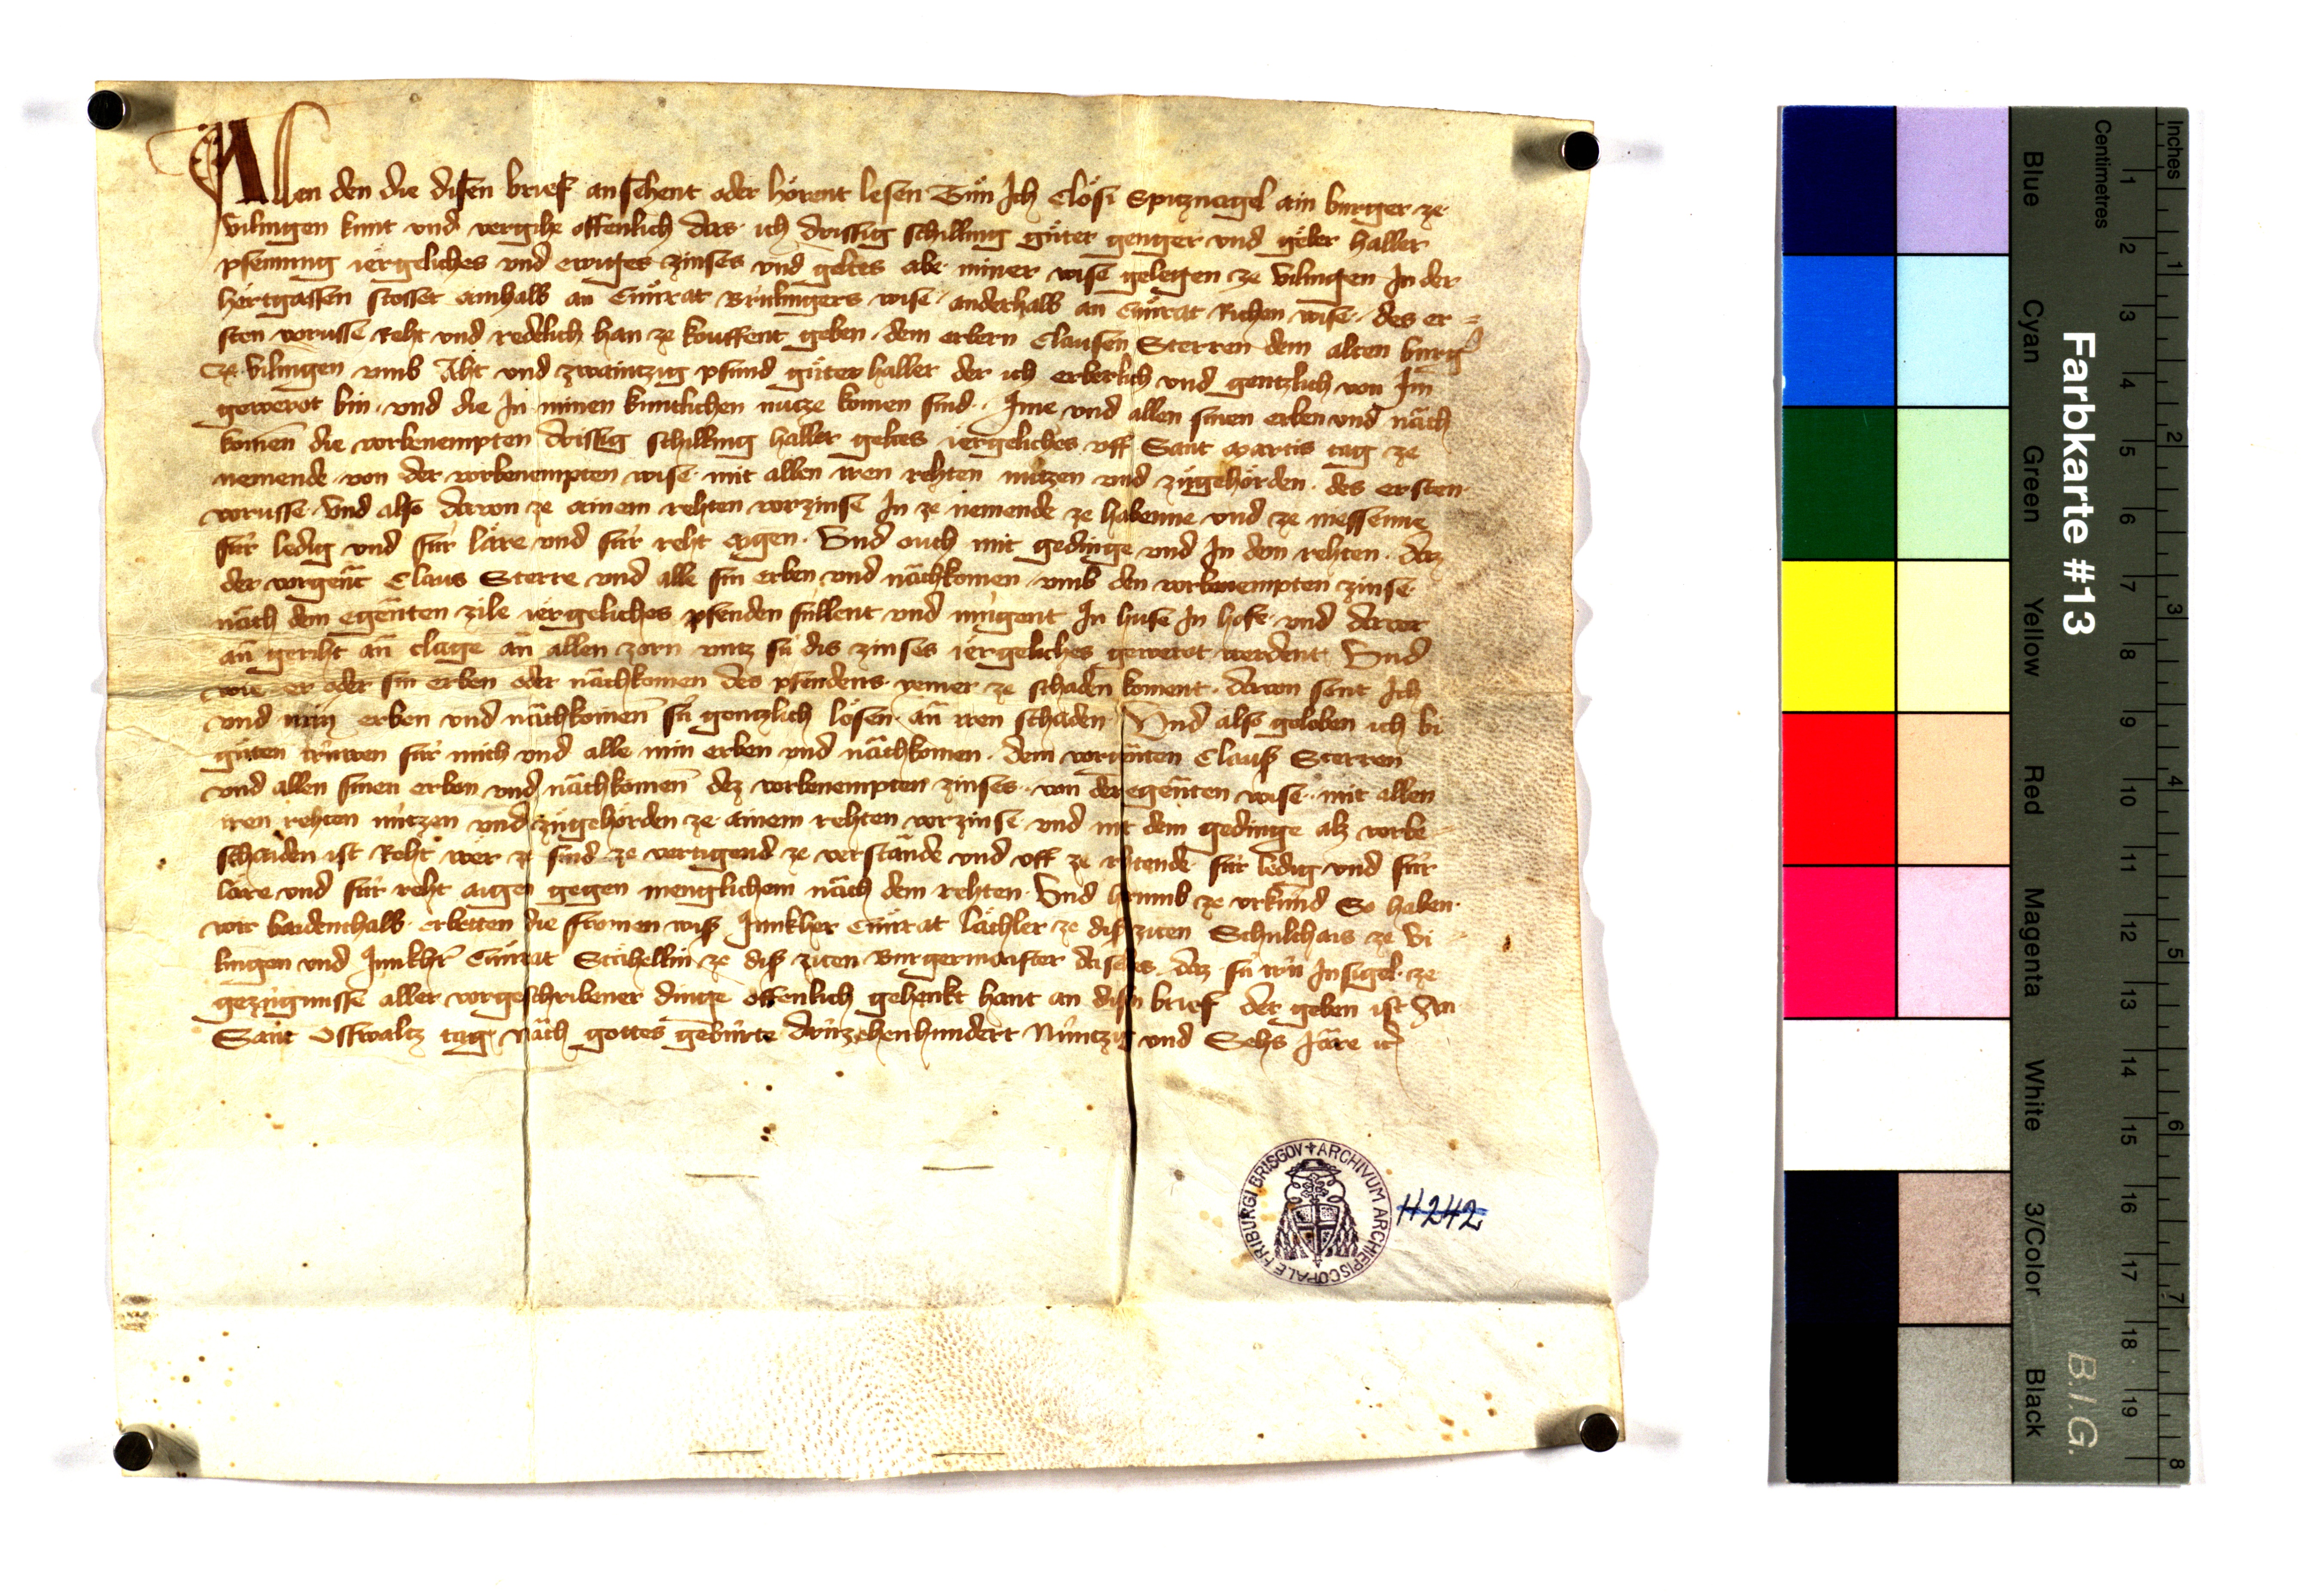 Allen den die disen brief ansehent oder hörent lesen Tůn Ich Clösi Spitznagel ain burger ze
Vilingen kunt und vergihe offenlich das ich drissig schilling gůter genger und geber haller
pfenning iergeliches und ewiges zinses und geltes abe miner wise gelegen ze Vilingen In der
hertgassen stosset ainhalb an Cůnrat Brúlingers wise anderhalb an Cůnrat Richen wise des er=
sten vorusse Reht und redelich han ze kouffent geben dem erbern Clausen Sterren dem alten burg
ze Vilingen umb Aht und zwaintzig pfund gůter haller der ich erberlich und gentzlich von Im
gewerot bin und die In minen kuntlichen nucze komen sind Ime und allen sinen erben und nâch
komen die vorbenempten drissig schilling haller geltes iergeliches uff Sant Martis tag ze
nemende von der vorbenempten wise mit allen iren rehten nútzen und zůgehörden des ersten
vorusse Und also davon ze ainem rehten vorzinse In ze nemende ze habenne und ze niessenne
fúr ledig und fúr läre und fúr reht aigen Und ouch mit gedinge und In dem rehten daz
der vorgent Claus Sterre und alle sin erben und nâchkomen umb den vorbenempten zinse
nâch dem egenten zile iergeliches pfenden súllent und mugent In huse In hofe und davor
ân geriht ân clage ân allen zorn untz sú dis zinses iergeliches gewerot werdent Und
wie er oder sin erben oder nâchkomen des pfendens yemer ze schaden koment davon sont Ich
und min erben und nâchkomen sú gentzlich lösen ân iren schaden Und also geloben ich bi
gůten trúwen fúr mich und alle min erben und nâchkomen dem vorgnten Claus Sterren
und allen sinen erben und nâchkomen dez vorbenempten zinses von der egenten wise mit allen
iren rehten nútzen und zůgehörden ze ainem rehten vorzinse und mit dem gedinge alz vorbe=
schaiden ist Reht wer ze sind ze vertigend ze verstânde und uff ze rihtende fúr ledig und fúr
läre und fúr reht aigen gegen menglichem nâch dem rehten Und hrumb ze urkúnd So haben
wir baidenthalb erbetten die fromen wis Junkher Cůnrat Lächler ze dis ziten Schulthais ze Vi
lingen und Junkhr Cůnrat Stähellin ze dis ziten Burgermaister daselbs daz sú irú Insigel ze
gezúgnisse aller vorgeschribener dinge offenlich gehenkt hant an disen brief der geben ist An
Sant Osswaltz tag nâch gottes gebúrte drúzehenhundert Núntzig und Sehs Jâre
ARCHIVUM ARCHIEPISCOPALE FRIBURGI BRISGOV
H 242
Farbkarte #13
B.I.G.
Blue Cyan Green Yellow Red Magenta White 3/Color Black
Centimetres 1 2 3 4 5 6 7 8 9 10 11 12 13 14 15 16 17 18 19
Inches 1 2 3 4 5 6 7 8